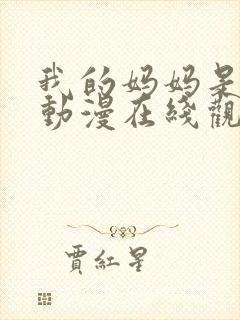 我的妈妈是
動漫在綫觀
賈紅星